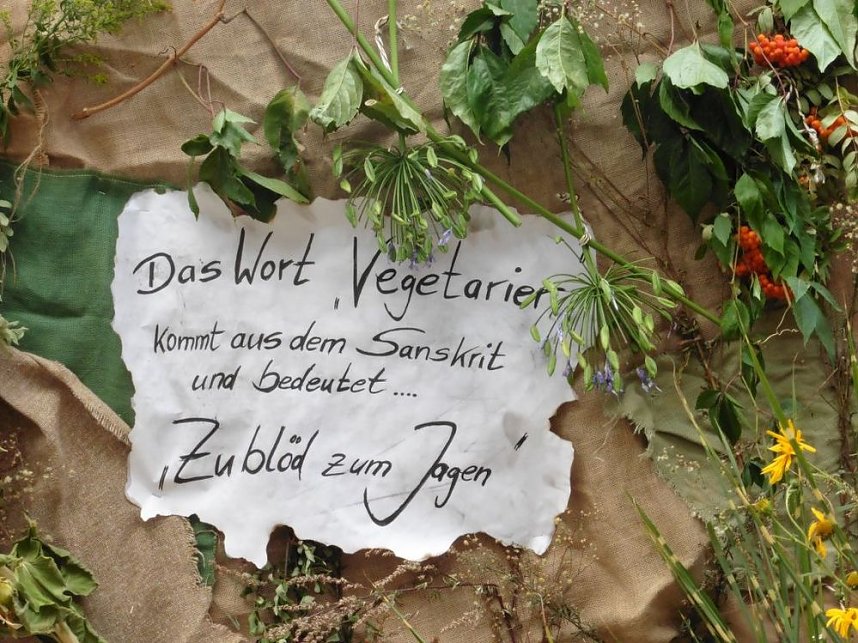 Das Wort „Vegetarier
kommt aus dem Sanskrit
und bedeutet....
„Zu blöd zum Jagen"